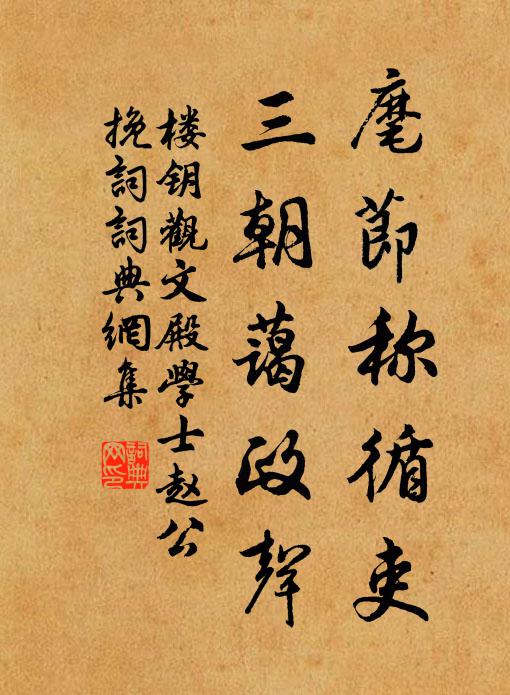 麾節称循吏
三朝蔼政聲
楼钥觀文殿學士赵公
挽詞詞典網集
詞典網印